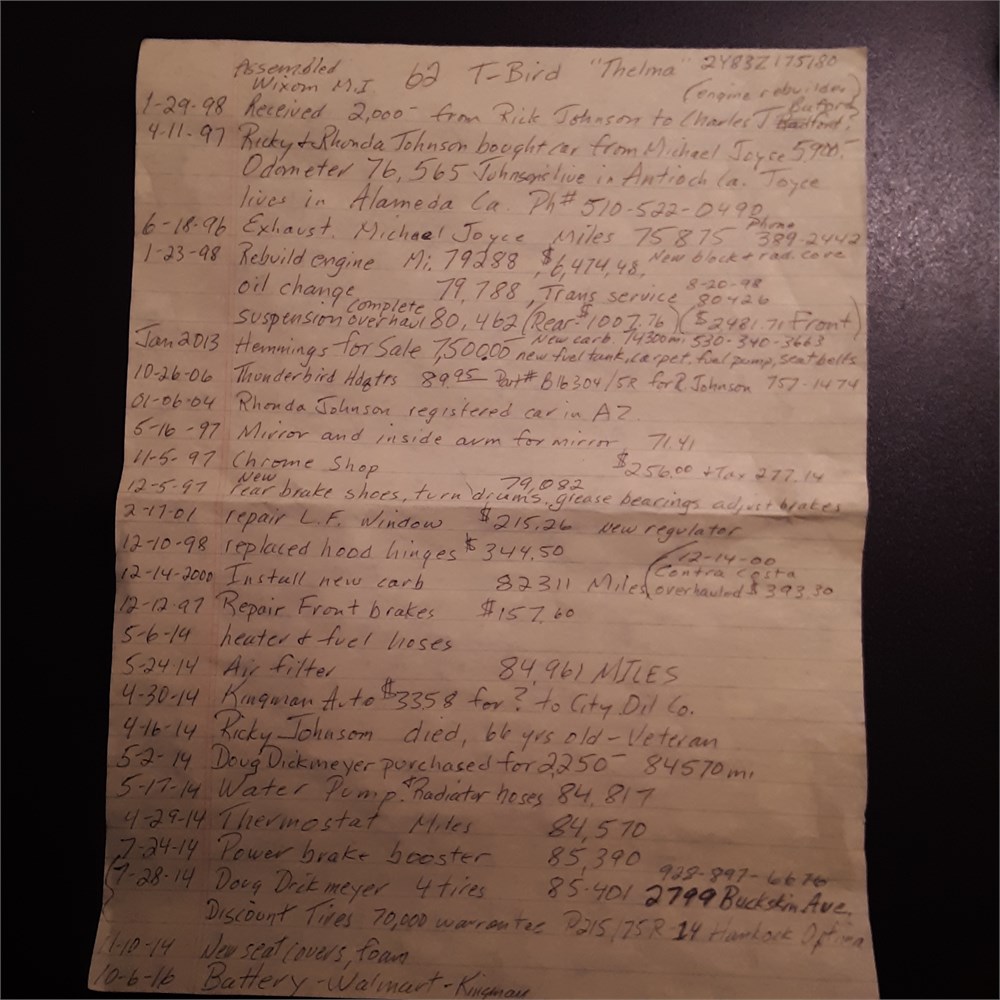 Assembled Wixom M.I 62 T-Bird "Thelma" 2Y83Z175180
(engine rebuilder)
1-29-98 Received 2,000- from Rick Johnson to Charles J Buford
4-11-97 Ricky & Rhonda Johnson bought car from Michael Joyce 5900.-
Odometer 76,565 Johnsons live in Antioch Ca. Joyce
lives in Alameda Ca. Ph# 510-522-0490
6-18-96 Exhaust. Michael Joyce Miles 75875 Phone 389-2442
1-23-98 Rebuild engine Mi. 79288 $6,474.48, New block & rad. core
oil change 79,788, Trans service 8-20-98 80426
suspension complete overhaul 80,462 (Rear-$1007.76) ($2481.71 Front)
New carb. 74300mi 530-340-3663
Jan 2013 Hemmings for Sale 7,500.00 new fuel tank, carpet, fuel pump, seat belts
10-26-06 Thunderbird Hdqtrs 89.95 Part# B16304/5R for R. Johnson 757-1474
01-06-04 Rhonda Johnson registered car in AZ.
5-16-97 Mirror and inside arm for mirror 71.41
11-5-97 Chrome Shop $256.00 + Tax 277.14
12-5-97 New rear brake shoes, turn drums, grease bearings adjust brakes 79,082
2-17-01 repair L.F. Window $215.26 New regulator
12-10-98 replaced hood hinges $344.50
12-14-2000 Install new carb 82311 Miles (12-14-00 Contra Costa overhauled $393.30
12-12-97 Repair Front brakes $157.60
5-6-14 heater & fuel hoses
5-24-14 Air filter 84,961 MILES
4-30-14 Kingman Auto $3358 for ? to City Oil Co.
4-16-14 Ricky Johnson died, 66 yrs old - Veteran
5-2-14 Doug Dickmeyer purchased for 2,250- 84570 mi.
5-17-14 Water Pump & Radiator hoses 84,817
4-29-14 Thermostat Miles 84,570
7-24-14 Power brake booster 85,390
928-897-6676
7-28-14 Doug Dickmeyer 4 tires 85-401 2799 Buckskin Ave.
Discount Tires 70,000 warrantee P215/75R-14 Hankook Optima
-10-14 New seat covers, foam
10-6-16 Battery-Walmart-Kingman